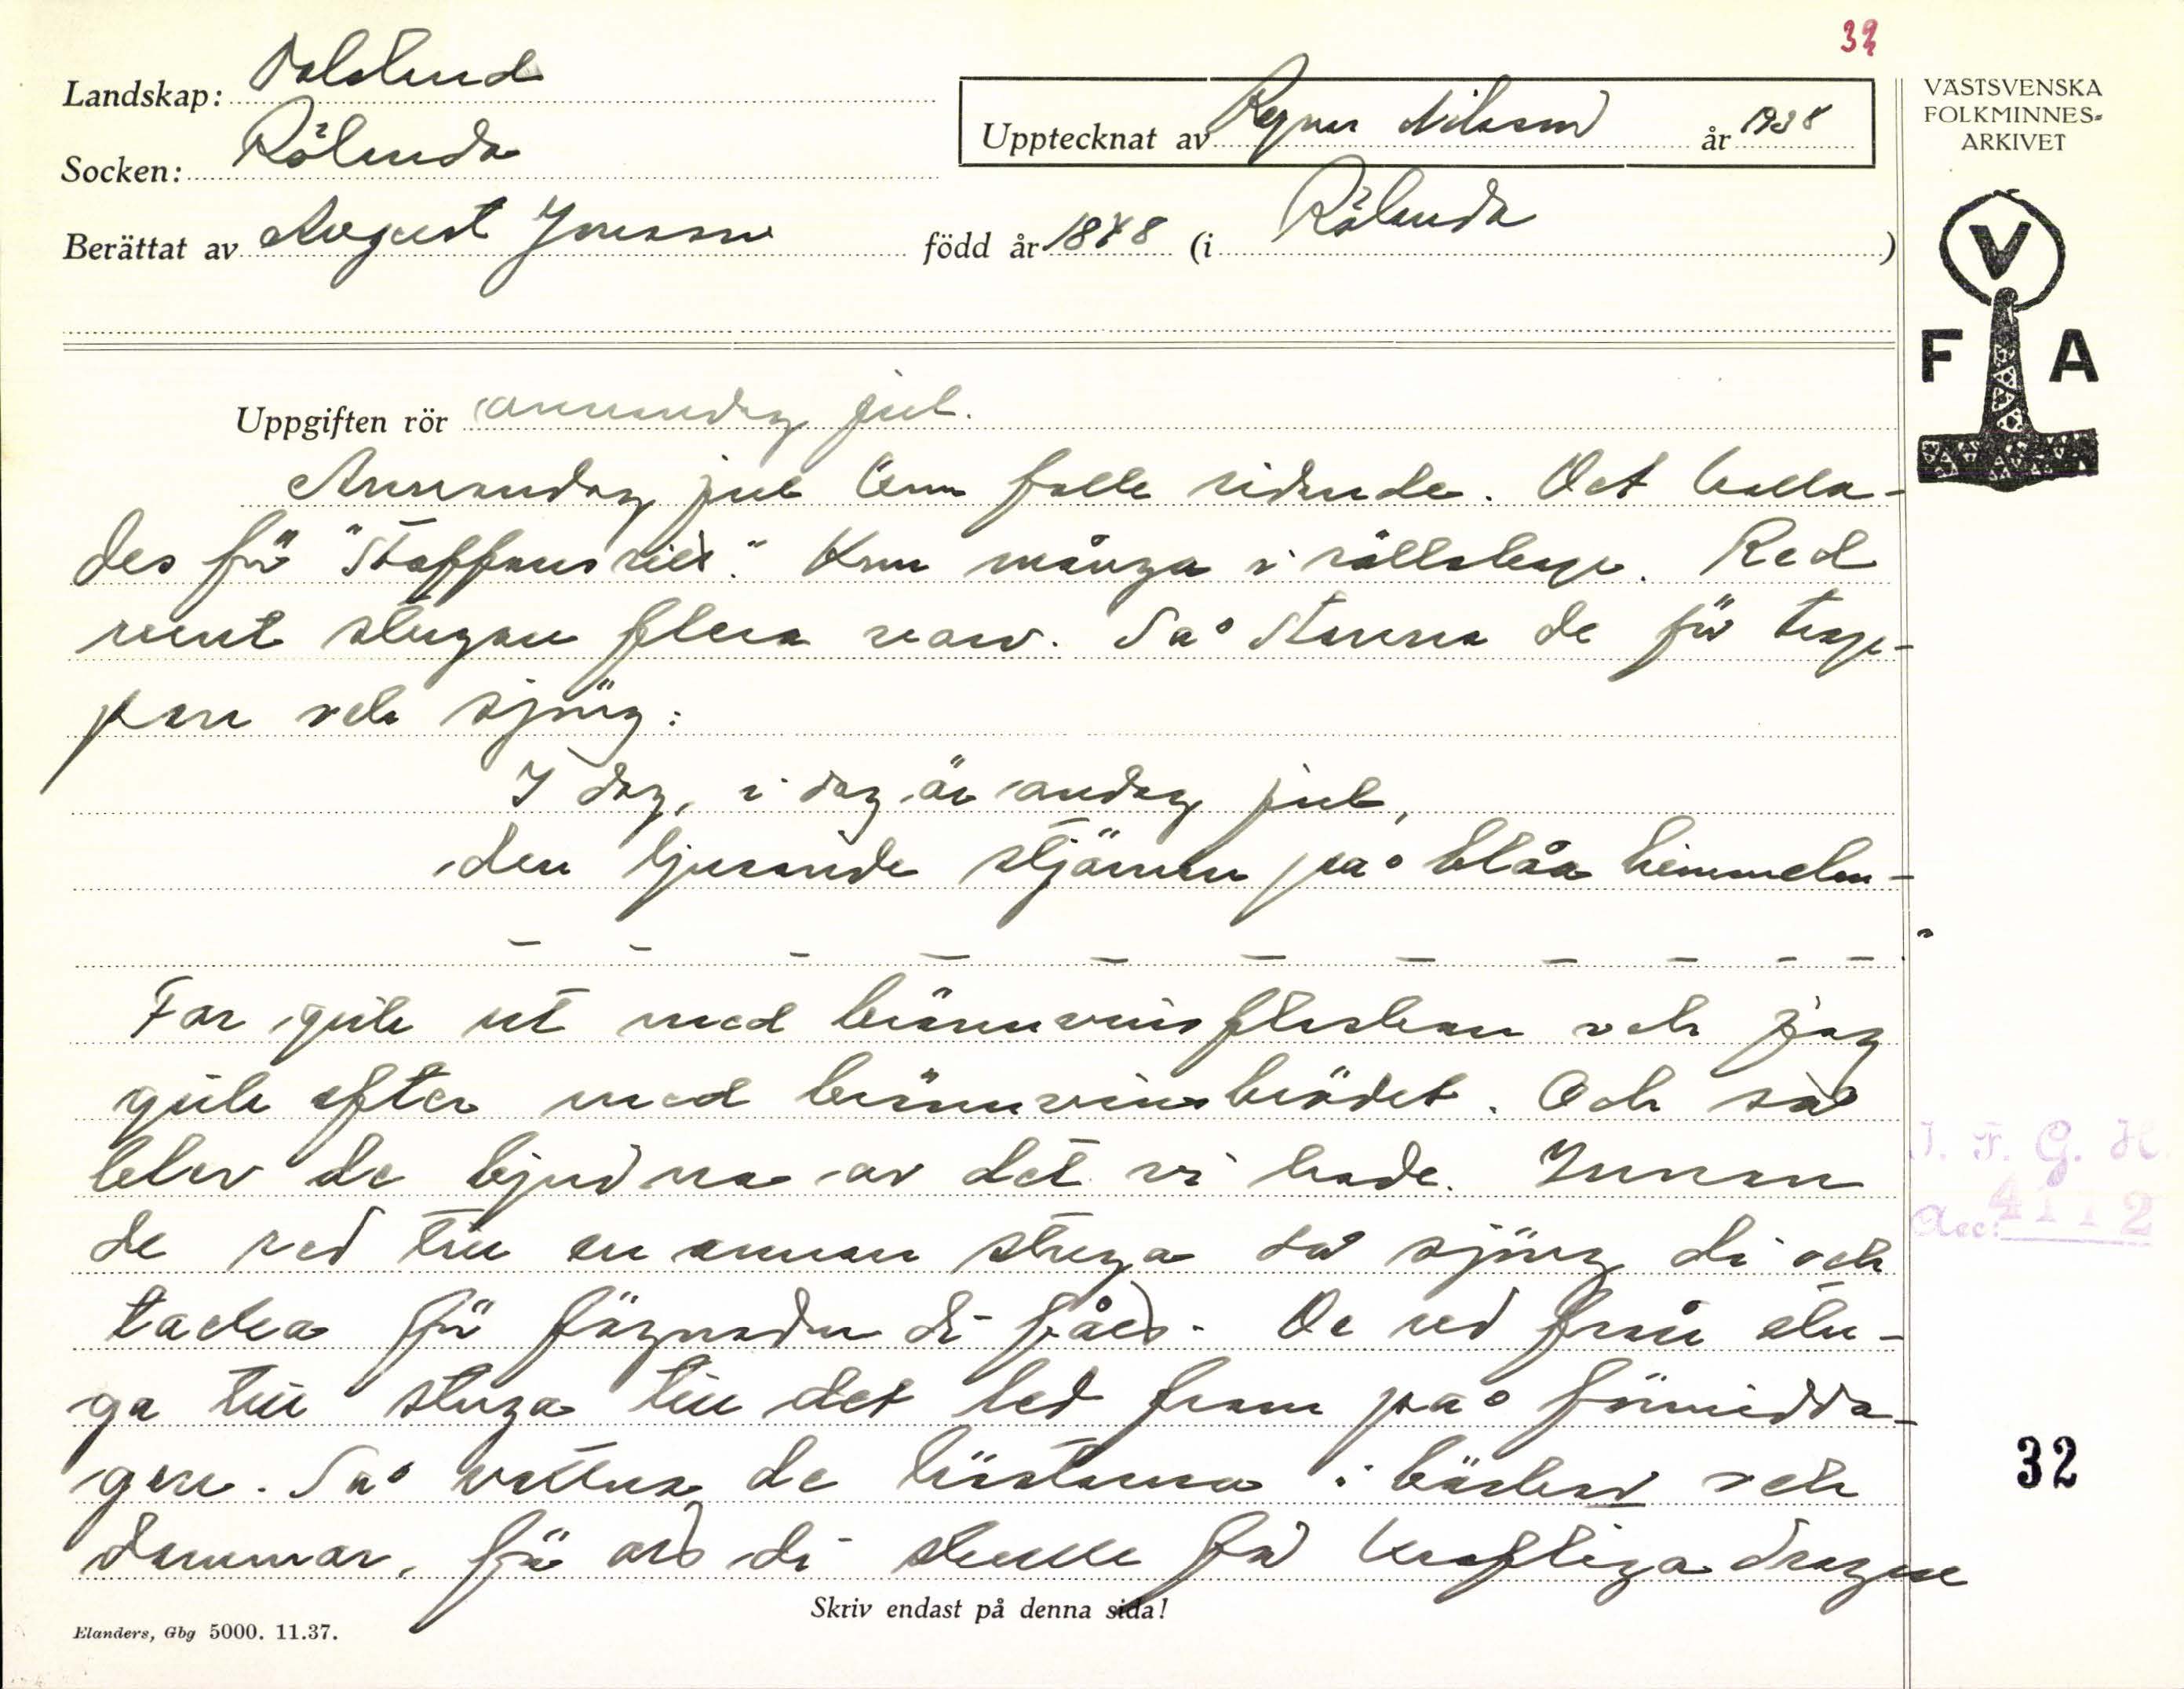 32
Landskap: Dalsland
Upptecknat av Ragnar Nilsson år 1938
VÄSTSVENSKA
FOLKMINNES-
ARKIVET
Socken: Rölanda
Berättat av August Jonsson född år 1848 (i Rölanda )
V
F A
Uppgiften rör annandag jul.
Annandag jul kom folk ridende. Det kalla-
des för "Staffansried". Kom många i sällskap. Red
runt stugan flera varv. Så stanna de för trap-
pan och sjöng:
I dag, i dag är andag jul,
den ljusande stjärnan på blåa himmelen
— — — — — — — — — — —
Far gick ut med brännvinsflaskan och jag
gick efter med brännvinsbrödet. Och så
blev de bjudna av det vi hade. Innan
de red till en annan stuga så sjöng di och
tacka för fägnaden di fått. De red från stu-
ga till stuga till det led fram på förmidda-
gen. Så vattna de hästarna i bäckar och
dammar, för att di skulle få kraftiga dragare
I. F. G. H.
Acc: 4112
32
Skriv endast på denna sida!
Elanders, Gbg 5000. 11.37.